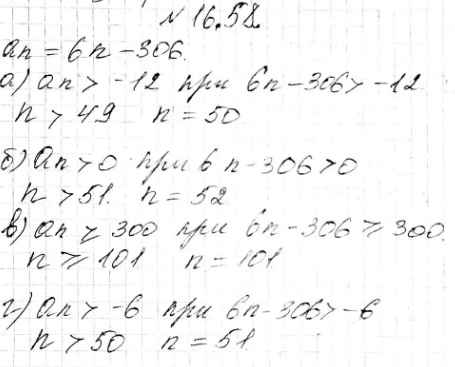 № 16.58.
an = 6n - 306.
а) an > -12 при 6n - 306 > -12
n > 49 n = 50
б) an > 0 при 6n - 306 > 0
n > 51. n = 52
в) an ≥ 300 при 6n - 306 ≥ 300.
n ≥ 101 n = 101
г) an > -6 при 6n - 306 > -6
n > 50 n = 51